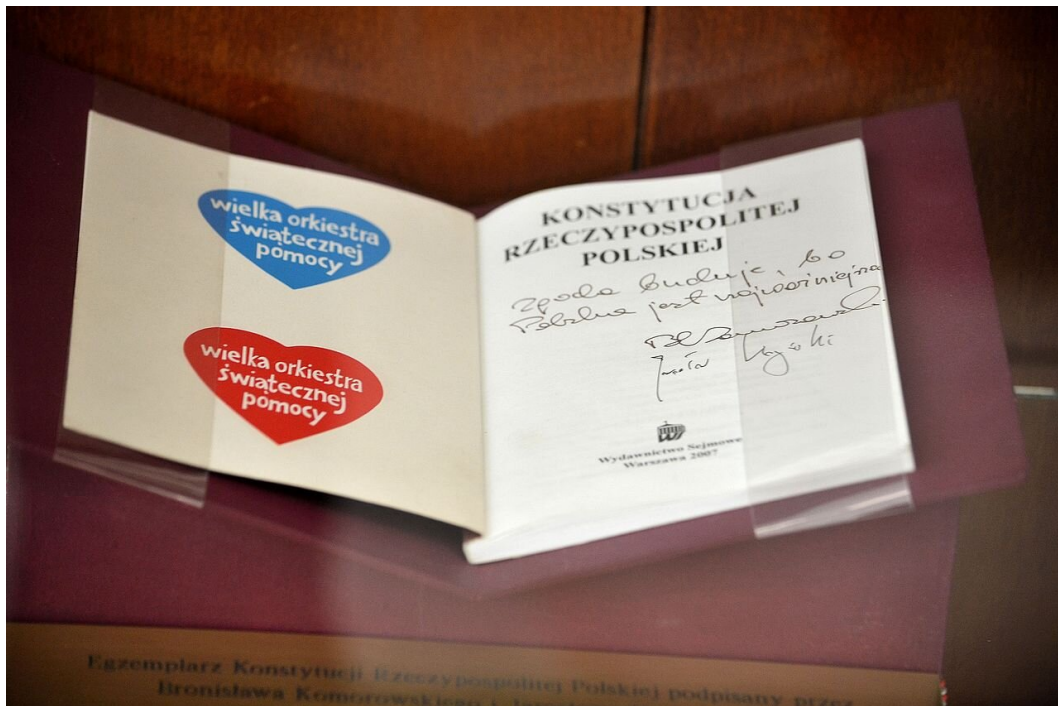 wielka orkiestra
świątecznej
pomocy
wielka orkiestra
świątecznej
pomocy
KONSTYTUCJA
RZECZYPOSPOLITEJ
POLSKIEJ
Zgoda buduje, bo
Polska jest najważniejsza
Wydawnictwo Sejmowe
Warszawa 2007
Egzemplarz Konstytucji Rzeczypospolitej Polskiej podpisany przez
Bronisława Komorowskiego i